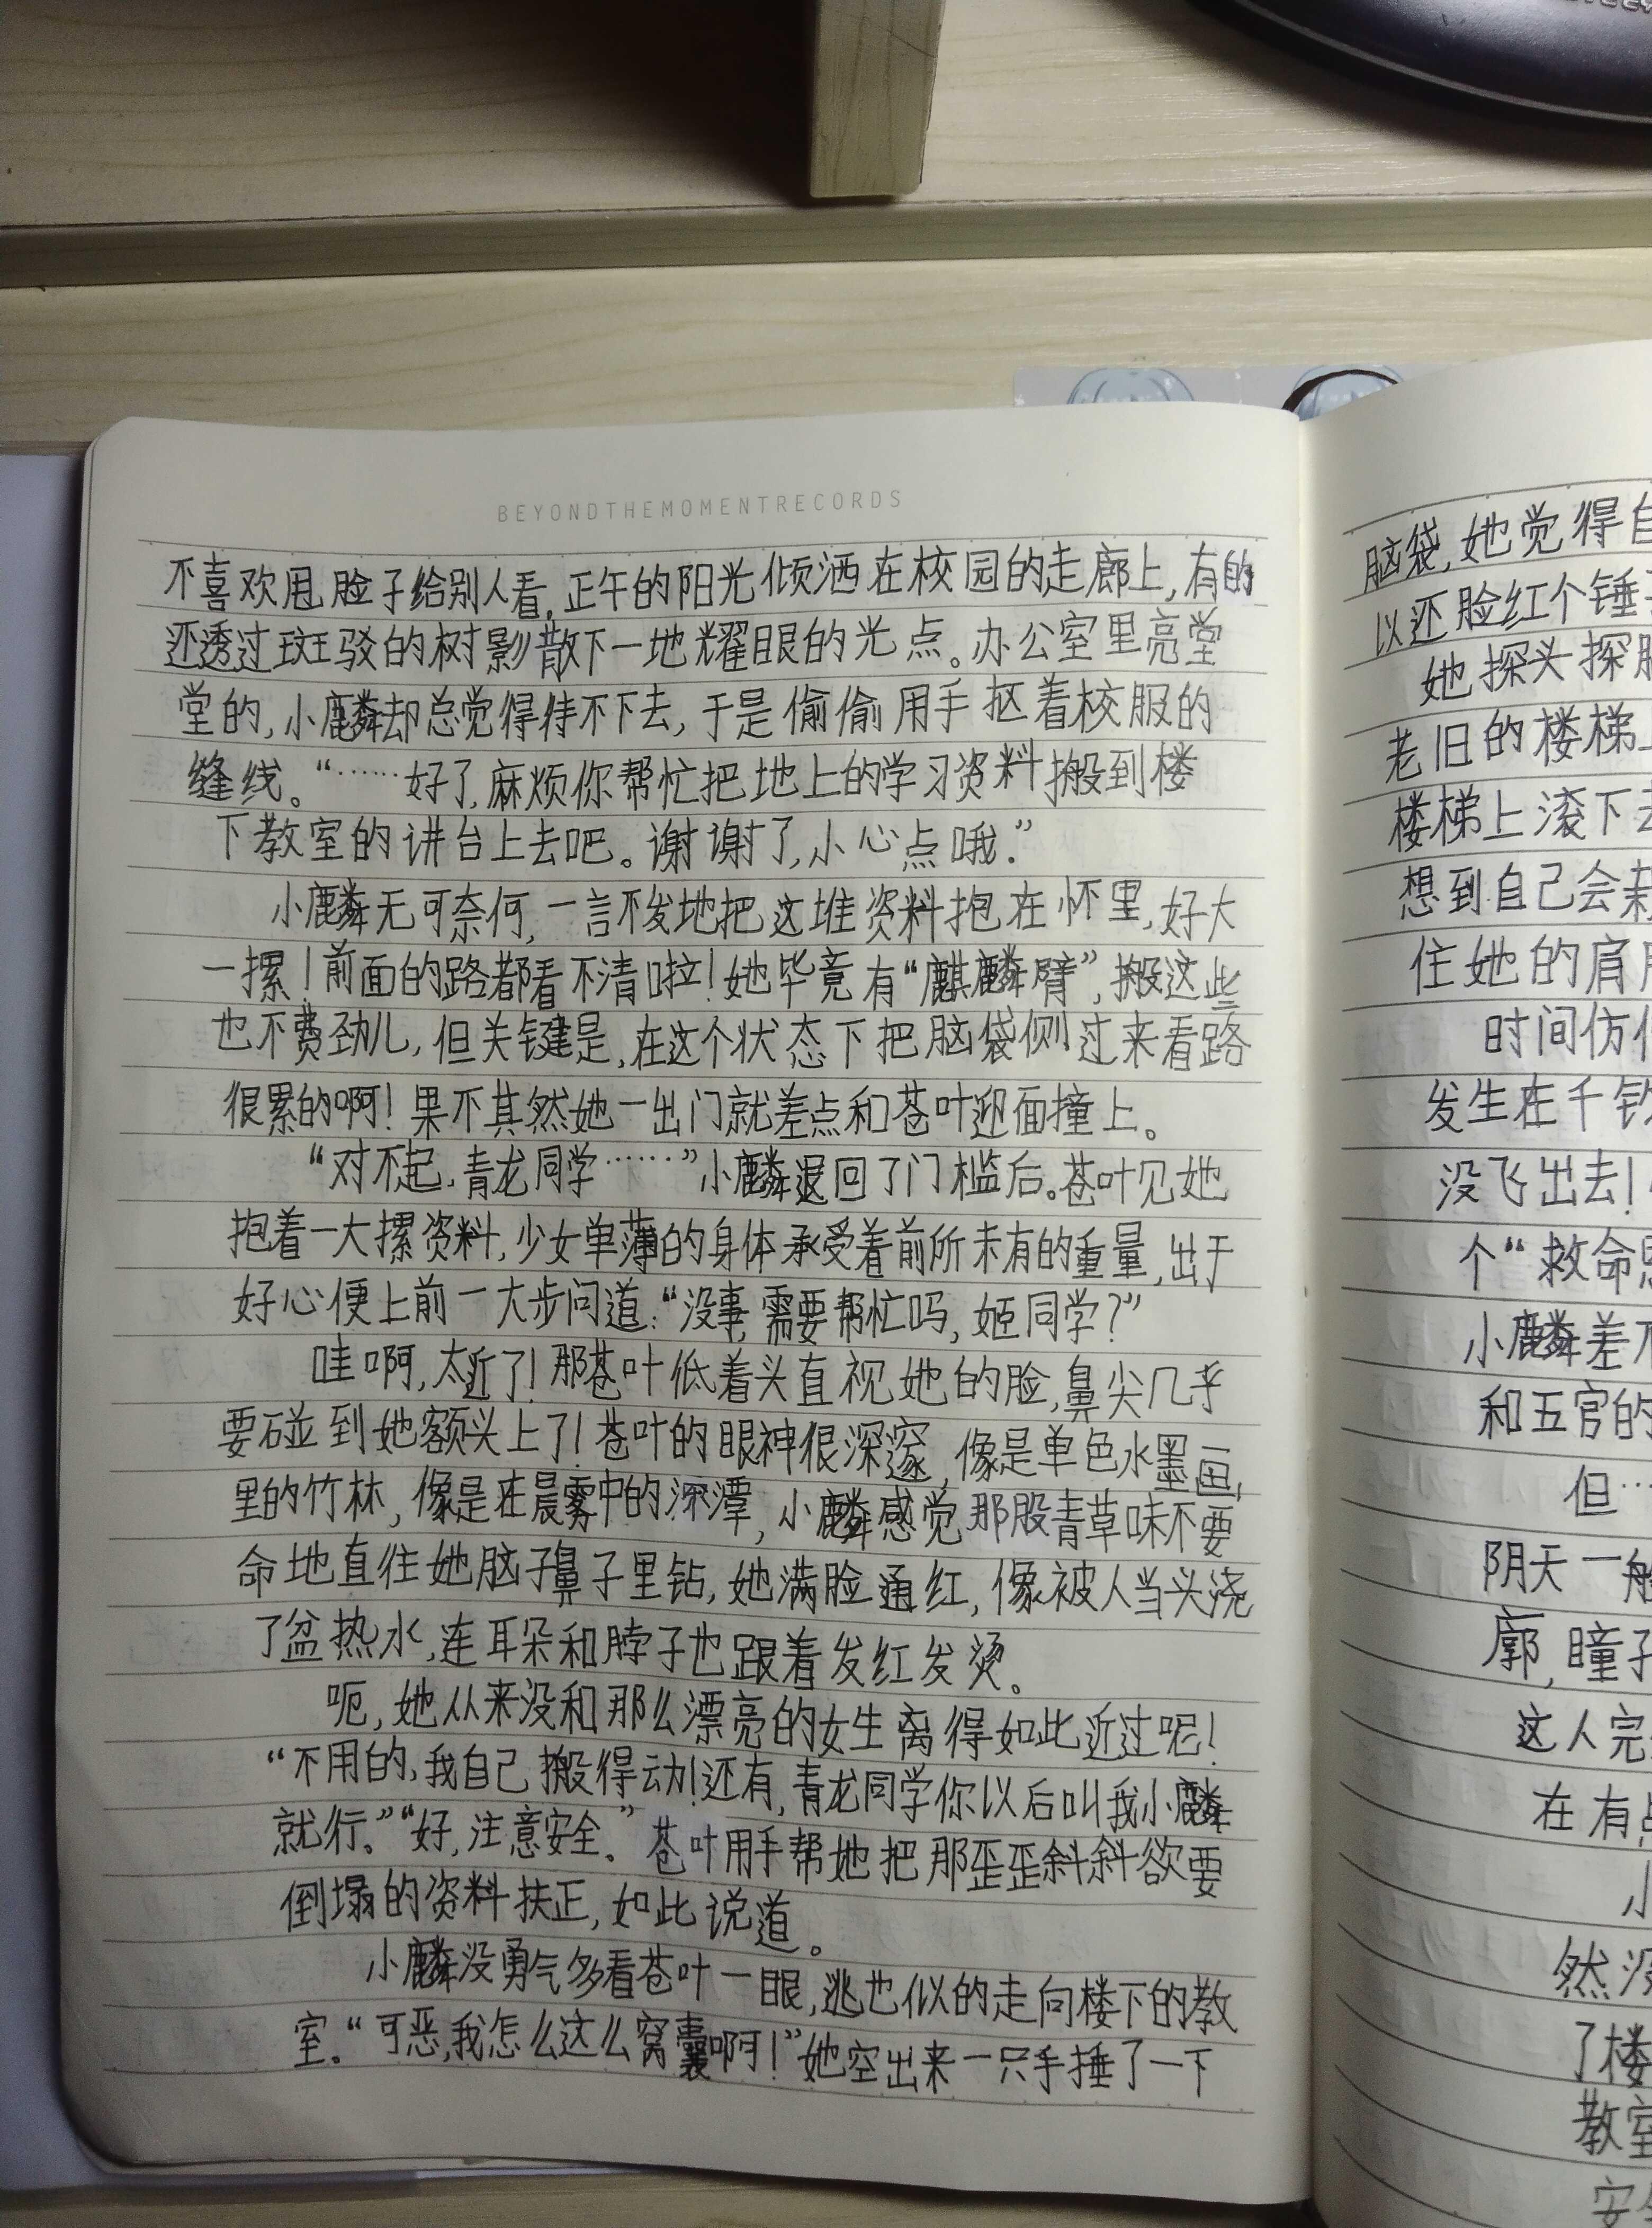 BEYONDTHEMOMENTRECORDS
不喜欢甩脸子给别人看,正午的阳光倾洒在校园的走廊上,有的
还透过斑驳的树影散下一地耀眼的光点。办公室里亮堂
堂的,小麟却总觉得待不下去,于是偷偷用手抠着校服的
缝线。“……好了,麻烦你帮忙把地上的学习资料搬到楼
下教室的讲台上去吧。谢谢了,小心点哦.”
小麟无可奈何,一言不发地把这堆资料抱在怀里,好大
一摞!前面的路都看不清啦!她毕竟有“麒麟臂”,搬这些
也不费劲儿,但关键是,在这个状态下把脑袋侧过来看路
很累的啊!果不其然她一出门就差点和苍叶迎面撞上。
“对不起,青龙同学……”小麟退回了门槛后。苍叶见她
抱着一大摞资料,少女单薄的身体承受着前所未有的重量,出于
好心便上前一大步问道:“没事,需要帮忙吗,姬同学?”
哇啊,太近了!那苍叶低着头直视她的脸,鼻尖几乎
要碰到她额头上了!苍叶的眼神很深邃,像是单色水墨画,
里的竹林,像是在晨雾中的深潭,小麟感觉那股青草味不要
命地直往她脑子鼻子里钻,她满脸通红,像被人当头浇
了盆热水,连耳朵和脖子也跟着发红发烫。
呃,她从来没和那么漂亮的女生离得如此近过呢!
“不用的,我自己搬得动!还有,青龙同学你以后叫我小麟
就行。”“好,注意安全。”苍叶用手帮她把那歪歪斜斜欲要
倒塌的资料扶正,如此说道。
小麟没勇气多看苍叶一眼,逃也似的走向楼下的教
室.“可恶,我怎么这么窝囊啊!”她空出来一只手捶了一下
脑袋,她觉得自
以还脸红个锤
她探头探脑
老旧的楼梯上
楼梯上滚下去
想到自己会栽
住她的肩
时间仿
发生在千钧
没飞出去!
个“救命恩
小麟差
和五官的
但…
阴天一般
廓,瞳孔
这人完
在有
小
然没
了楼
教室
安